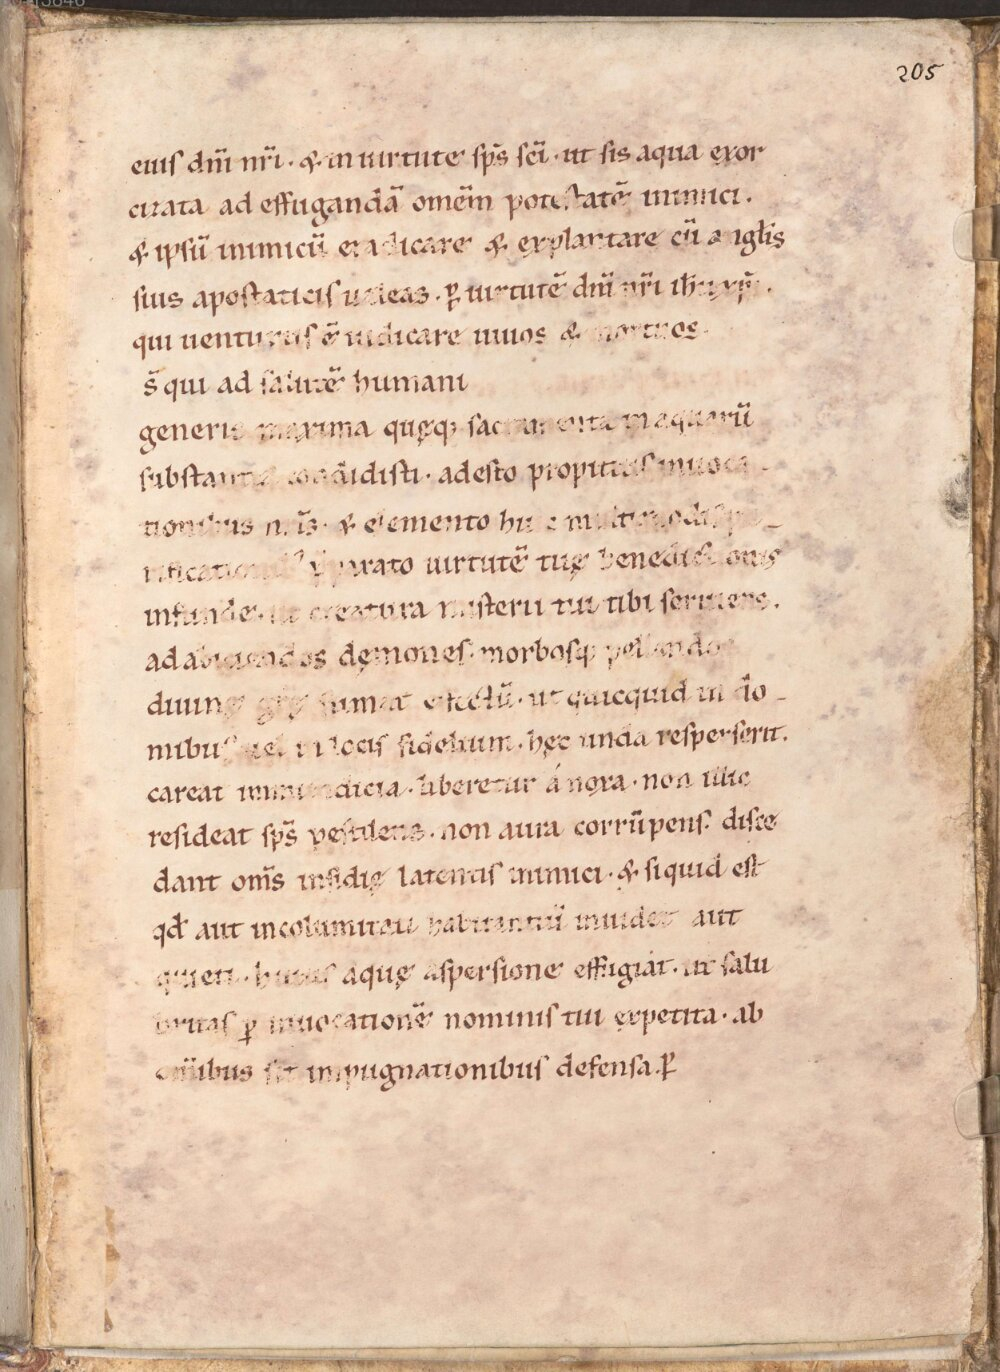 205
eius dñi nr̃i · & in uirtute sp̃s sc̃i · ut sis aqua exor
cizata ad effugandã omẽm potestatẽ inimici .
& ipsũ inimicũ eradicare & explantare cũ angl̃is
suis apostaticis ualeas . ꝑ uirtutẽ dñi nr̃i ih̃u xp̃i .
qui uenturus ẽ iudicare uiuos & mortuos .
s̃ qui ad salutẽ humani
generis maxima quęq; sacramenta in aquarũ
substantia condidisti . adesto propitius inuoca -
tionibus nr̃is . & elemento huic multimodis pu -
rificationib; p̃parato uirtutẽ tuę benedictionis
infunde . ut creatura misterii tui tibi seruiens .
ad abiciendos dęmones . morbosq; pellendos
diuinę grę̃ sumat effectũ . ut quicquid in do -
mibus uel in locis fidelium . hęc unda resperserit .
careat inmundicia . liberetur á noxa . non illic
resideat sp̃s pestilens . non aura corrũpens . disce
dant om̃s insidię latentis inimici . & siquid est
qđ aut incolumitati habitantiũ inuidet aut
quieti . huius aquę aspersione effugiat . ut salu
britas ꝑ inuocationẽ nominis tui expetita . ab
om̃ibus sit inpugnationibus defensa . ꝑ